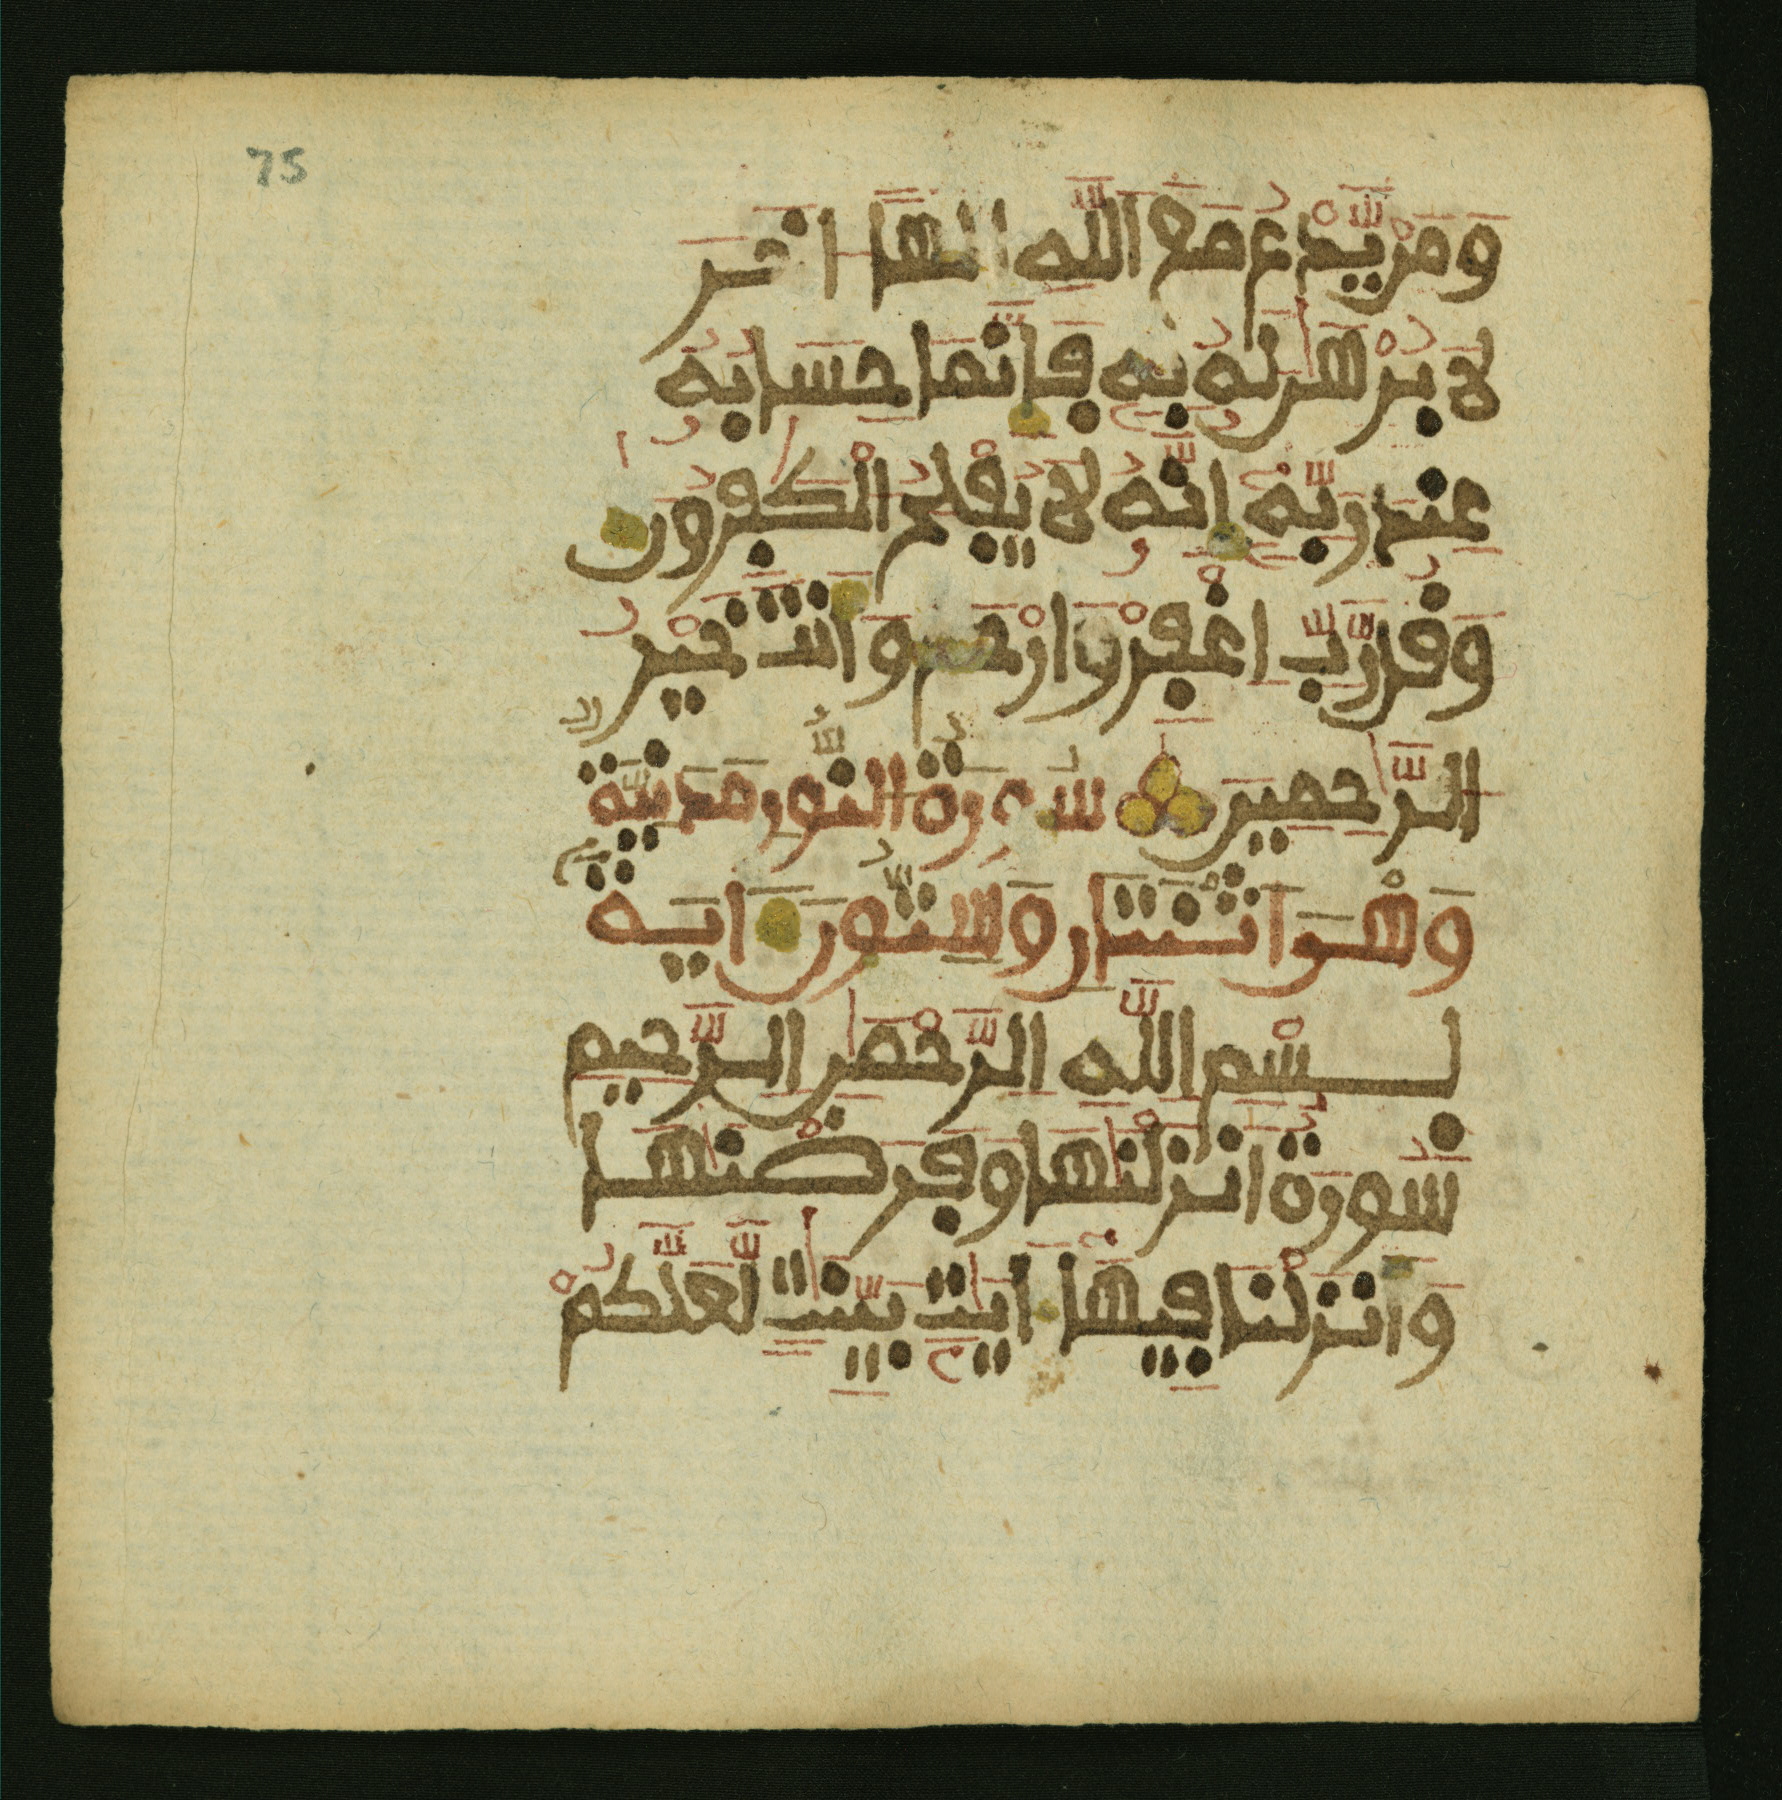 75
وَمَنْ يَّدْعُ مَعَ اللَّهِ إِلَٰهًا اخَرَ
لَا بُرْهَٰنَ لَهُ بِهِ فَإِنَّمَا حِسَابُهُ
عِندَ رَبِّهِ إِنَّهُ لَا يُفْلِحُ الْكَٰفِرُونَ
وَقُل رَّبِّ اغْفِرْ وَارْحَمْ وَأَنتَ خَيْرُ
الرَّٰحِمِينَ سُورَةُ النُّورِ مَدَنِيَّةٌ
وَهْىَ اثْنَتَانِ وَسِتُّونَ ايَةً
بِسْمِ اللَّهِ الرَّحْمَٰنِ الرَّحِيمِ
سُورَةٌ انزَلْنَٰهَا وَفَرَضْنَٰهَا
وَأَنزَلْنَا فِيهَا ءَايَٰتٍ بَيِّنَٰتٍ لَّعَلَّكُمْ